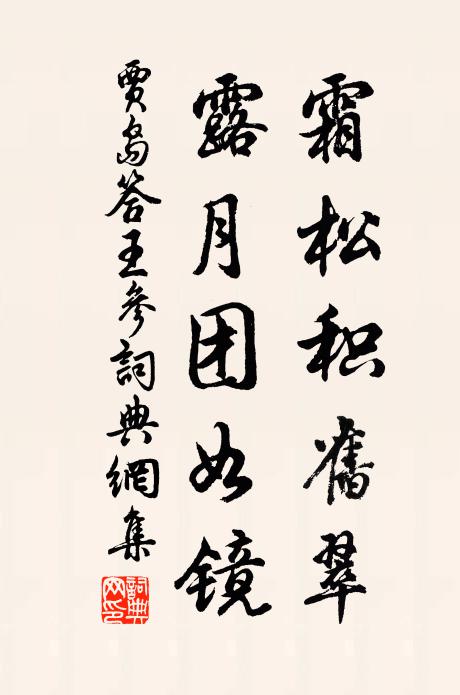 霜松积舊翠
露月团如镜
賈島答王参詞典網集
詞典网印